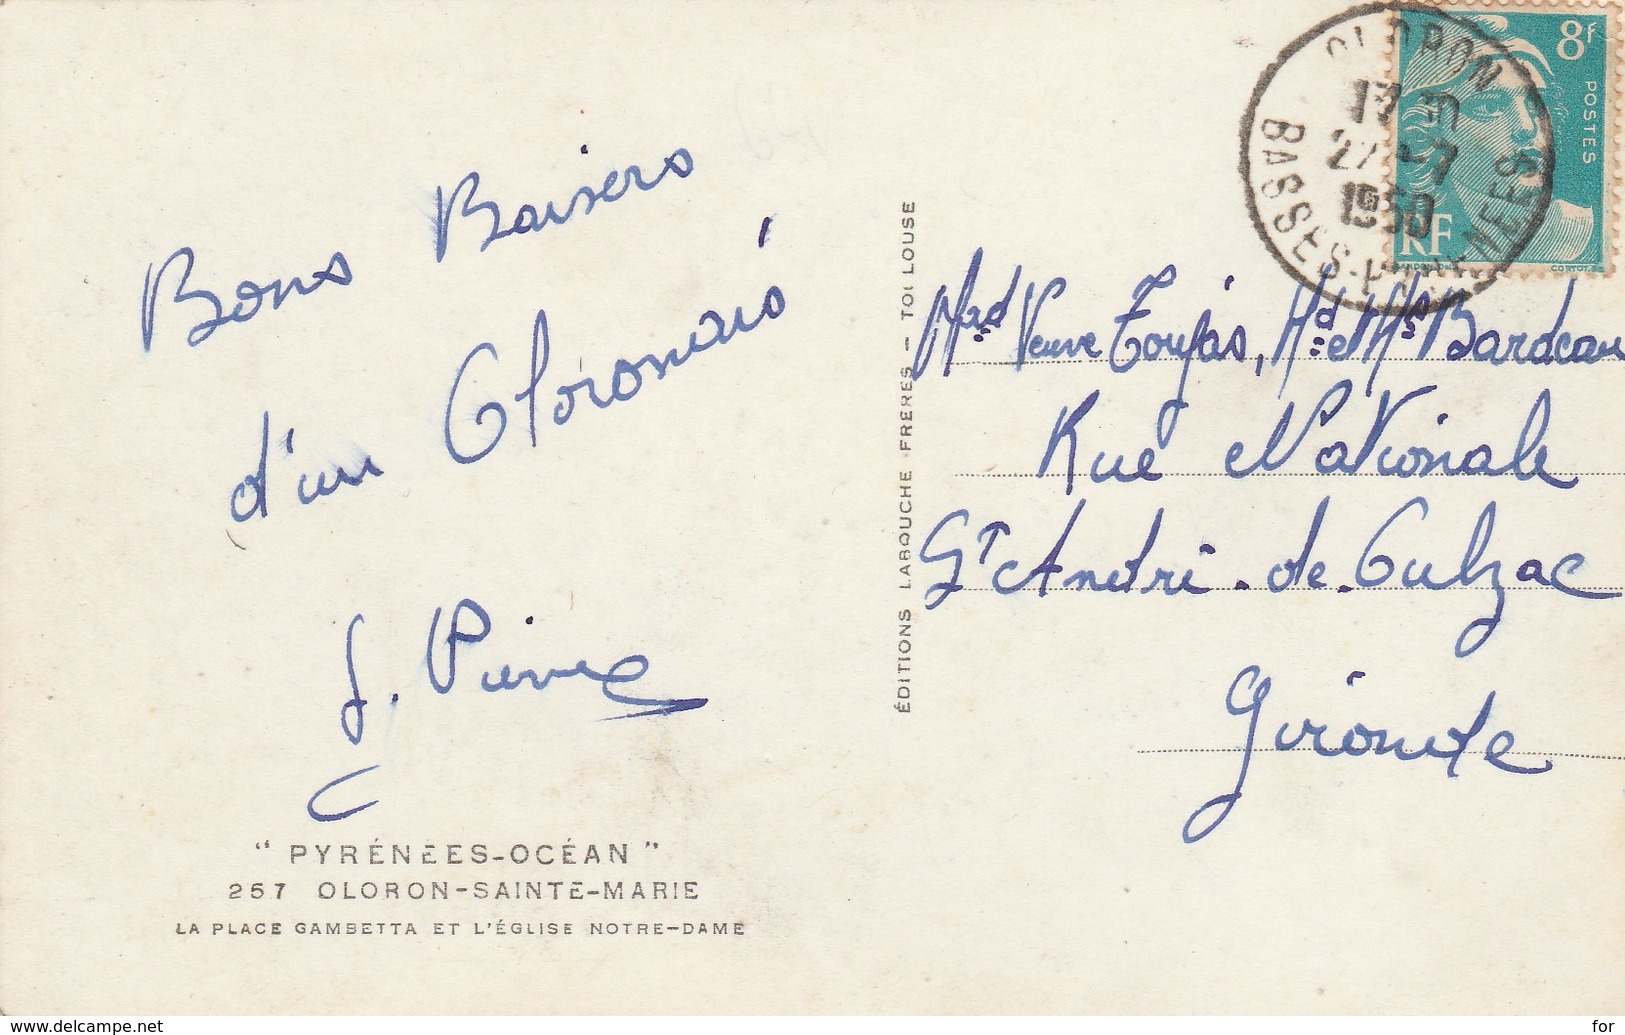 Bons Baisers
d'un Oloronais
J. Pierre
" PYRÉNÉES-OCÉAN "
257 OLORON-SAINTE-MARIE
LA PLACE GAMBETTA ET L'ÉGLISE NOTRE-DAME
ÉDITIONS LABOUCHE FRÈRES – TOULOUSE
OLORON
27 -7
1950
BASSES-PYRÉNÉES
8F
POSTES
RF
CORTOT.
Mad Veuve Toujas, Md et Mr Bardeau
Rue Nationale
St André-de-Cubzac
Gironde
www.delcampe.net
for